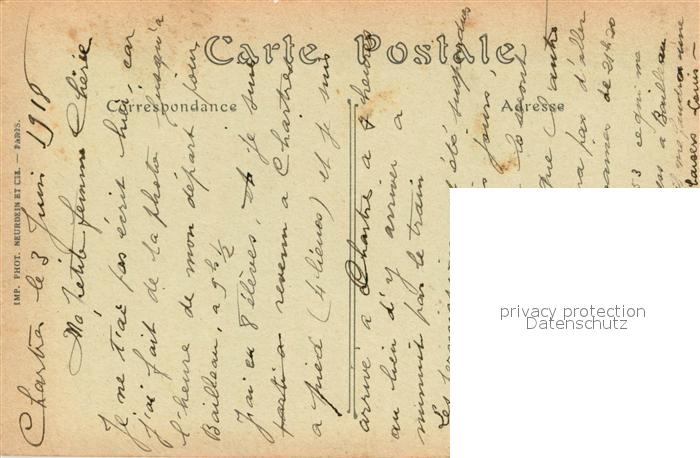 Carte Postale
Correspondance
Adresse
IMP. PHOT. NEURDEIN ET CIE. — PARIS.
Chartres le 3 Juin 1918
Ma petite femme Chérie
Je ne t'ai pas écrit hier, car
j'ai fait de la photo jusqu'à
l'heure de mon départ pour
Bailleau, a 9h ½
J'ai eu 8 élèves, je suis
parti revenu a Chartres
a pied (4 lieues) et je suis
arrivé a Chartres a 7 heures
au lieu d'y arriver a
minuit par le train
Les
été suspendues
jours,
le seront
que l'autre
pas d'aller
de
53 ce qui me
a Bailleau
me faudra une
privacy protection
Datenschutz